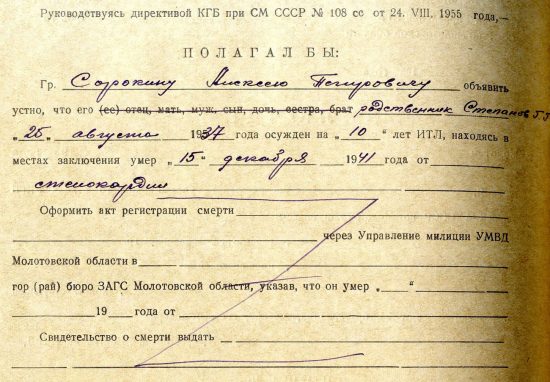 Руководствуясь директивой КГБ при СМ СССР № 108 сс от 24. VIII, 1955 года,—
ПОЛАГАЛ БЫ:
Гр. Сорокину Алексею Петровичу объявить
устно, что его (ее) отец, мать, муж, сын, дочь, сестра, брат родственник Степанов
„25 августа 1937 года осужден на „10“ лет ИТЛ, находясь в
местах заключения умер „15“ декабря 1941 года от
стенокардии
Оформить акт регистрации смерти
через Управление милиции УМВД
Молотовской области в
гор (рай) бюро ЗАГС Молотовской области, указав, что он умер „ “
19 года от
Свидетельство о смерти выдать